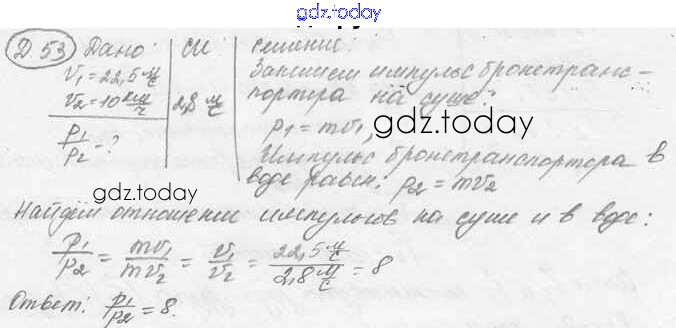 gdz.today
Д.53 Дано: СИ Решение:
v₁=22,5 м/с Запишем импульс бронетранс-
v₂=10 км/ч 2,8 м/с портера на суше:
p₁/p₂-? p₁=mv₁,
gdz.today
Импульс бронетранспортера в
воде равен: p₂=mv₂
gdz.today
Найдём отношение импульсов на суше и в воде:
p₁/p₂ = mv₁/mv₂ = v₁/v₂ = 22,5 м/с / 2,8 м/с = 8
Ответ: p₁/p₂ = 8.